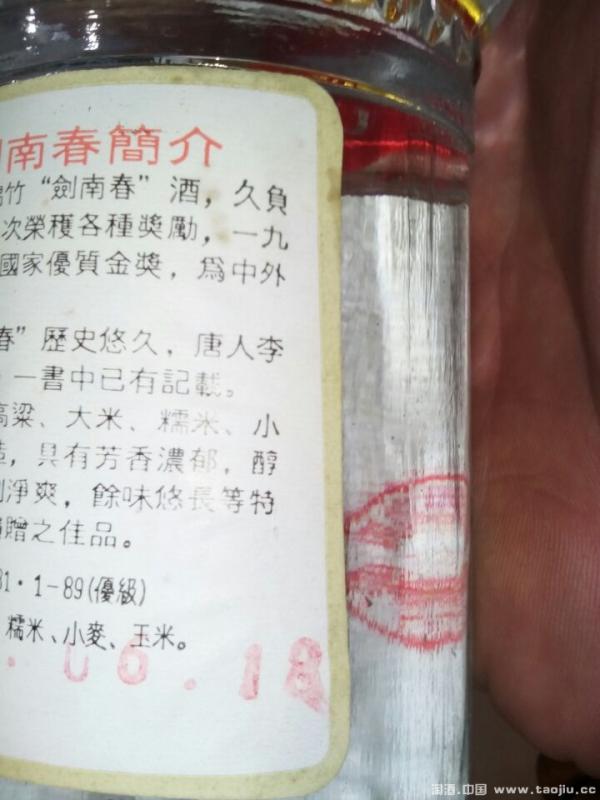 南春簡介
竹“劍南春”酒，久負
次榮獲各種獎勵，一九
國家優質金獎，爲中外
春”歷史悠久，唐人李
一書中已有記載。
高粱、大米、糯米、小
具有芳香濃郁，醇
淨爽，餘味悠長等特
贈之佳品。
1·1-89(優級)
糯米、小麥、玉米。
.06.18
淘酒.中国 www.taojiu.cc